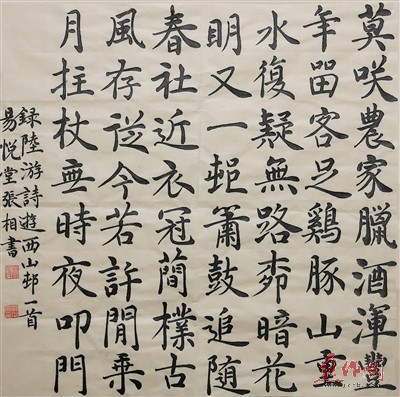 莫咲農家臘酒渾豐
年留客足鷄豚山重
水復疑無路柳暗花
眀又一邨簫鼓追隨
春社近衣冠蕳樸古
風存從今若許閒乘
月拄杖無時夜叩門
録陸游詩遊西山邨一首
易悅堂張相書